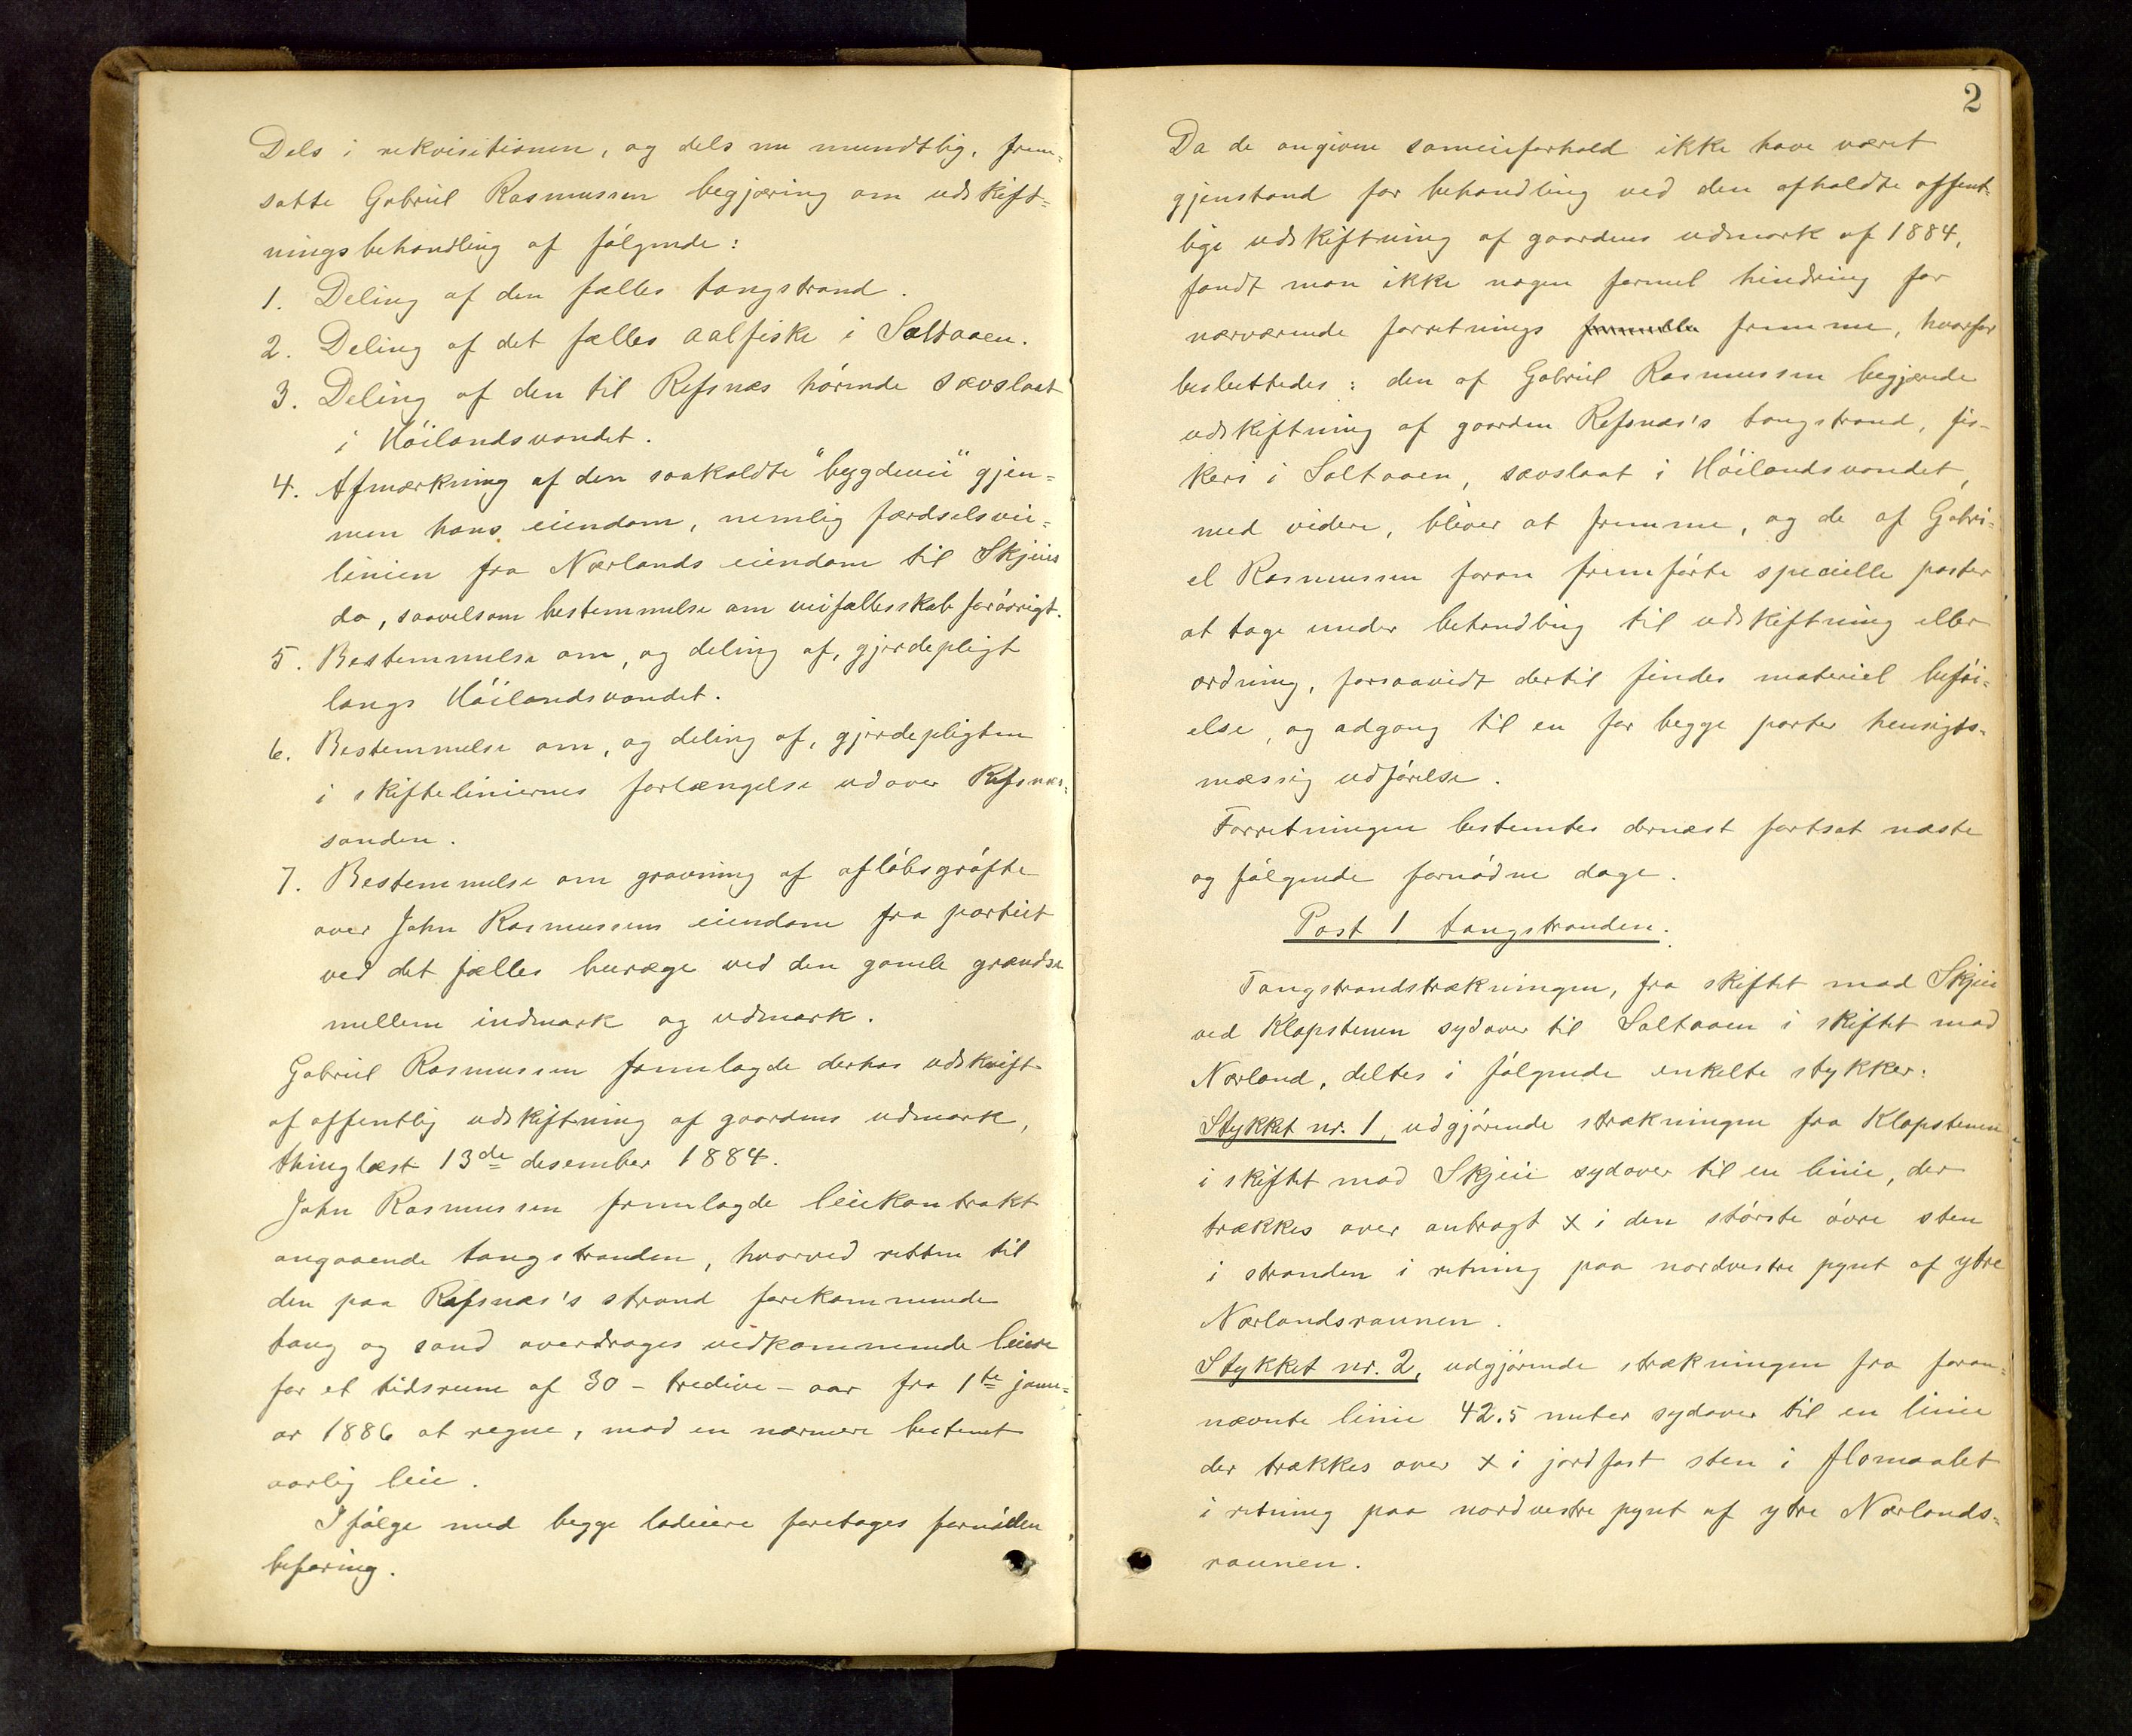 Dels i rekvisitionen, og dels nu mundtlig, frem-
satte Gabriel Rasmussen begjæring om udskift=
ningsbehandling af følgende:
1. Deling af den fælles tangstrand.
2. Deling af det fælles aalfiske i Saltaaen.
3. Deling af den til Refsnæs hørende sævslaat
i Høilandsvandet.
4. Afmærkning af den saakaldte "bygdevei" gjen=
nem hans eiendom, nemlig færdselsvei=
linien fra Nærlands eiendom til Skjeies
do, saavelsom bestemmelse om veifællesskab forøvrigt.
5. Bestemmelse om, og deling af, gjerdepligt
langs Høilandsvandet.
6. Bestemmelse om, og deling af, gjerdepligten
i skiftelinierne forlængelse udover Refsnæs=
sanden.
7. Bestemmelse om gravning af afløbsgrøfte
over John Rasmussens eiendom fra partiet
ved det fælles hevæge ved den gamle grændse
mellem indmark og udmark.
Gabriel Rasmussen fremlagde derhos udskrift
af offentlig udskiftning af gaardens udmark,
thinglæst 13de desember 1884.
John Rasmussen fremlagde leiekontrakt
angaaende tangstranden, hvorved retten til
den paa Refsnæs's strand forekommende
tang og sand overdrages vedkommende leiere
for et tidsrum af 30 - tredive - aar fra 1te janu=
ar 1886 at regne, mod en nærmere bestemt
aarlig leie.
I følge med begge lodeiere foretages fornøden
befaring.
2
Da de angivne sameieforhold ikke have været
gjenstand for behandling ved den afholdte offent=
lige udskiftning af gaardens udmark af 1884,
fandt man ikke nogen formel hindring for
nærværende forretnings fremme, hvorfor
besluttedes: den af Gabriel Rasmussen begjærede
udskiftning af gaarden Refsnæs's tangstrand, fis-
keri i Saltaaen, sævslaat i Høilandsvandet,
med videre, bliver at fremme, og de af Gabri=
el Rasmussen foran fremførte specielle poster
at tage under behandling til udskiftning eller
ordning, forsaavidt dertil findes materiel beføi=
else, og adgang til en for begge parter hensigts=
mæssig udførelse.
Forretningen bestemtes dernæst fortsat næste
og følgende fornødne dage.
Post 1 tangstranden.
Tangstrandstrækningen, fra skiftet mod Skjeie
ved Klapstenen sydover til Saltaaen i skiftet mod
Nærland, deltes i følgende enkelte stykker:
Stykket nr. 1, udgjørende strækningen fra Klapstenen
i skiftet mod Skjeie sydover til en linie, der
trækkes over antragt x i den største øvre sten
i stranden i retning paa nordvestre pynt af ytre
Nærlandsraunen.
Stykket nr. 2, udgjørende strækningen fra foran=
nævnte linie 42.5 meter sydover til en linie
der trækkes over x i jordfast sten i flomaalet
i retning paa nordvestre pynt af ytre Nærlands=
raunen.